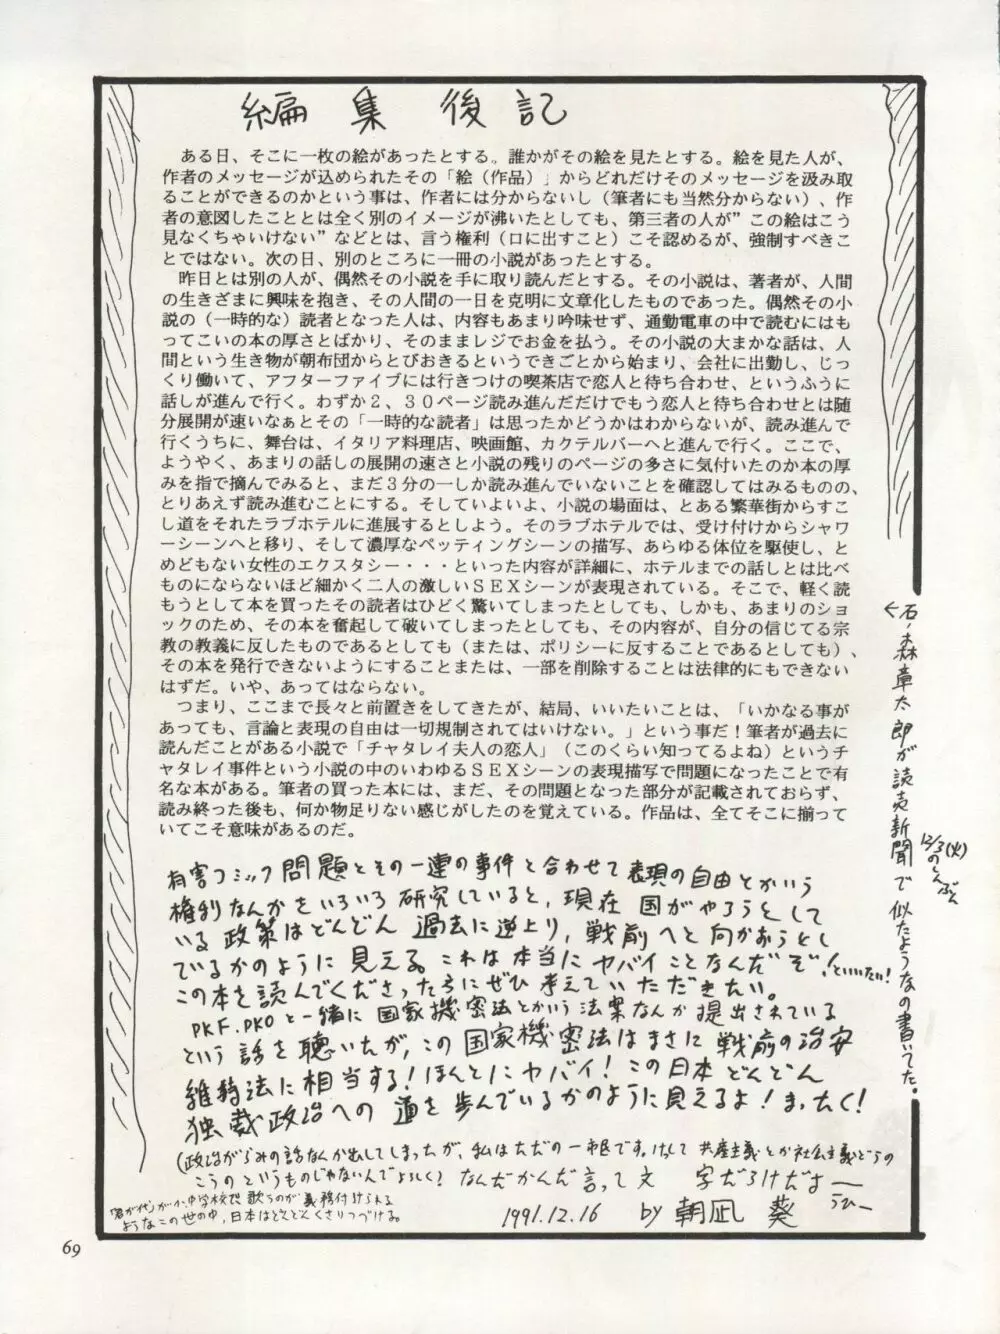 編集後記
ある日、そこに一枚の絵があったとする。誰かがその絵を見たとする。絵を見た人が、
作者のメッセージが込められたその「絵（作品）」からどれだけそのメッセージを汲み取
ることができるのかという事は、作者には分からないし（筆者にも当然分からない）、作
者の意図したこととは全く別のイメージが沸いたとしても、第三者の人が”この絵はこう
見なくちゃいけない”などとは、言う権利（口に出すこと）こそ認めるが、強制すべきこ
とではない。次の日、別のところに一冊の小説があったとする。
昨日とは別の人が、偶然その小説を手に取り読んだとする。その小説は、著者が、人間
の生きざまに興味を抱き、その人間の一日を克明に文章化したものであった。偶然その小
説の（一時的な）読者となった人は、内容もあまり吟味せず、通勤電車の中で読むにはも
ってこいの本の厚さとばかり、そのままレジでお金を払う。その小説の大まかな話は、人
間という生き物が朝布団からとびおきるというできごとから始まり、会社に出勤し、じっ
くり働いて、アフターファイブには行きつけの喫茶店で恋人と待ち合わせ、というふうに
話しが進んで行く。わずか２、３０ページ読み進んだだけでもう恋人と待ち合わせとは随
分展開が速いなぁとその「一時的な読者」は思ったかどうかはわからないが、読み進んで
行くうちに、舞台は、イタリア料理店、映画館、カクテルバーへと進んで行く。ここで、
ようやく、あまりの話しの展開の速さと小説の残りのページの多さに気付いたのか本の厚
みを指で摘んでみると、まだ３分の一しか読み進んでいないことを確認してはみるものの、
とりあえず読み進むことにする。そしていよいよ、小説の場面は、とある繁華街からすこ
し道をそれたラブホテルに進展するとしよう。そのラブホテルでは、受け付けからシャワ
ーシーンへと移り、そして濃厚なペッティングシーンの描写、あらゆる体位を駆使し、と
めどもない女性のエクスタシー・・・といった内容が詳細に、ホテルまでの話しとは比べ
ものにならないほど細かく二人の激しいＳＥＸシーンが表現されている。そこで、軽く読
もうとして本を買ったその読者はひどく驚いてしまったとしても、しかも、あまりのショ
ックのため、その本を奮起して破いてしまったとしても、その内容が、自分の信じてる宗
教の教義に反したものであるとしても（または、ポリシーに反することであるとしても）、
その本を発行できないようにすることまたは、一部を削除することは法律的にもできない
はずだ。いや、あってはならない。
つまり、ここまで長々と前置きをしてきたが、結局、いいたいことは、「いかなる事が
あっても、言論と表現の自由は一切規制されてはいけない。」という事だ！筆者が過去に
読んだことがある小説で「チャタレイ夫人の恋人」（このくらい知ってるよね）というチ
ャタレイ事件という小説の中のいわゆるＳＥＸシーンの表現描写で問題になったことで有
名な本がある。筆者の買った本には、まだ、その問題となった部分が記載されておらず、
読み終った後も、何か物足りない感じがしたのを覚えている。作品は、全てそこに揃って
いてこそ意味があるのだ。
有害コミック問題とその一連の事件と合わせて表現の自由とかいう
権利なんかをいろいろ研究していると、現在国がやろうとして
いる政策はどんどん過去に逆上り、戦前へと向かおうとし
でいるかのように見える。これは本当にヤバイことなんだぞ！といいたい！
この本を読んでくださった方にぜひ考えていただきたい。
PKF.PKOと一緒に国家機密法とかいう法案なんか提出されている
という話を聴いたが、この国家機密法はまさに戦前の治安
維持法に相当する！ほんとにヤバイ！この日本どんどん
独裁政治への道を歩んでいるかのように見えるよ！まったく！
(政治がらみの話なんか出してしまったが、私はただの一市民です。けして共産主義とか社会主義とどうの
こうのというものじゃないんでよろしく！なんだかんだ言って文字だらけだよー
うひー
「君が代」が小・中学校で歌うのが義務付けられる
ようなこの世の中、日本はどんどんくさりつづける。
1991.12.16 by 朝凪 葵
←石ノ森章太郎が読売新聞で似たようなの書いてた。
12/3(火)のしんぶん
69